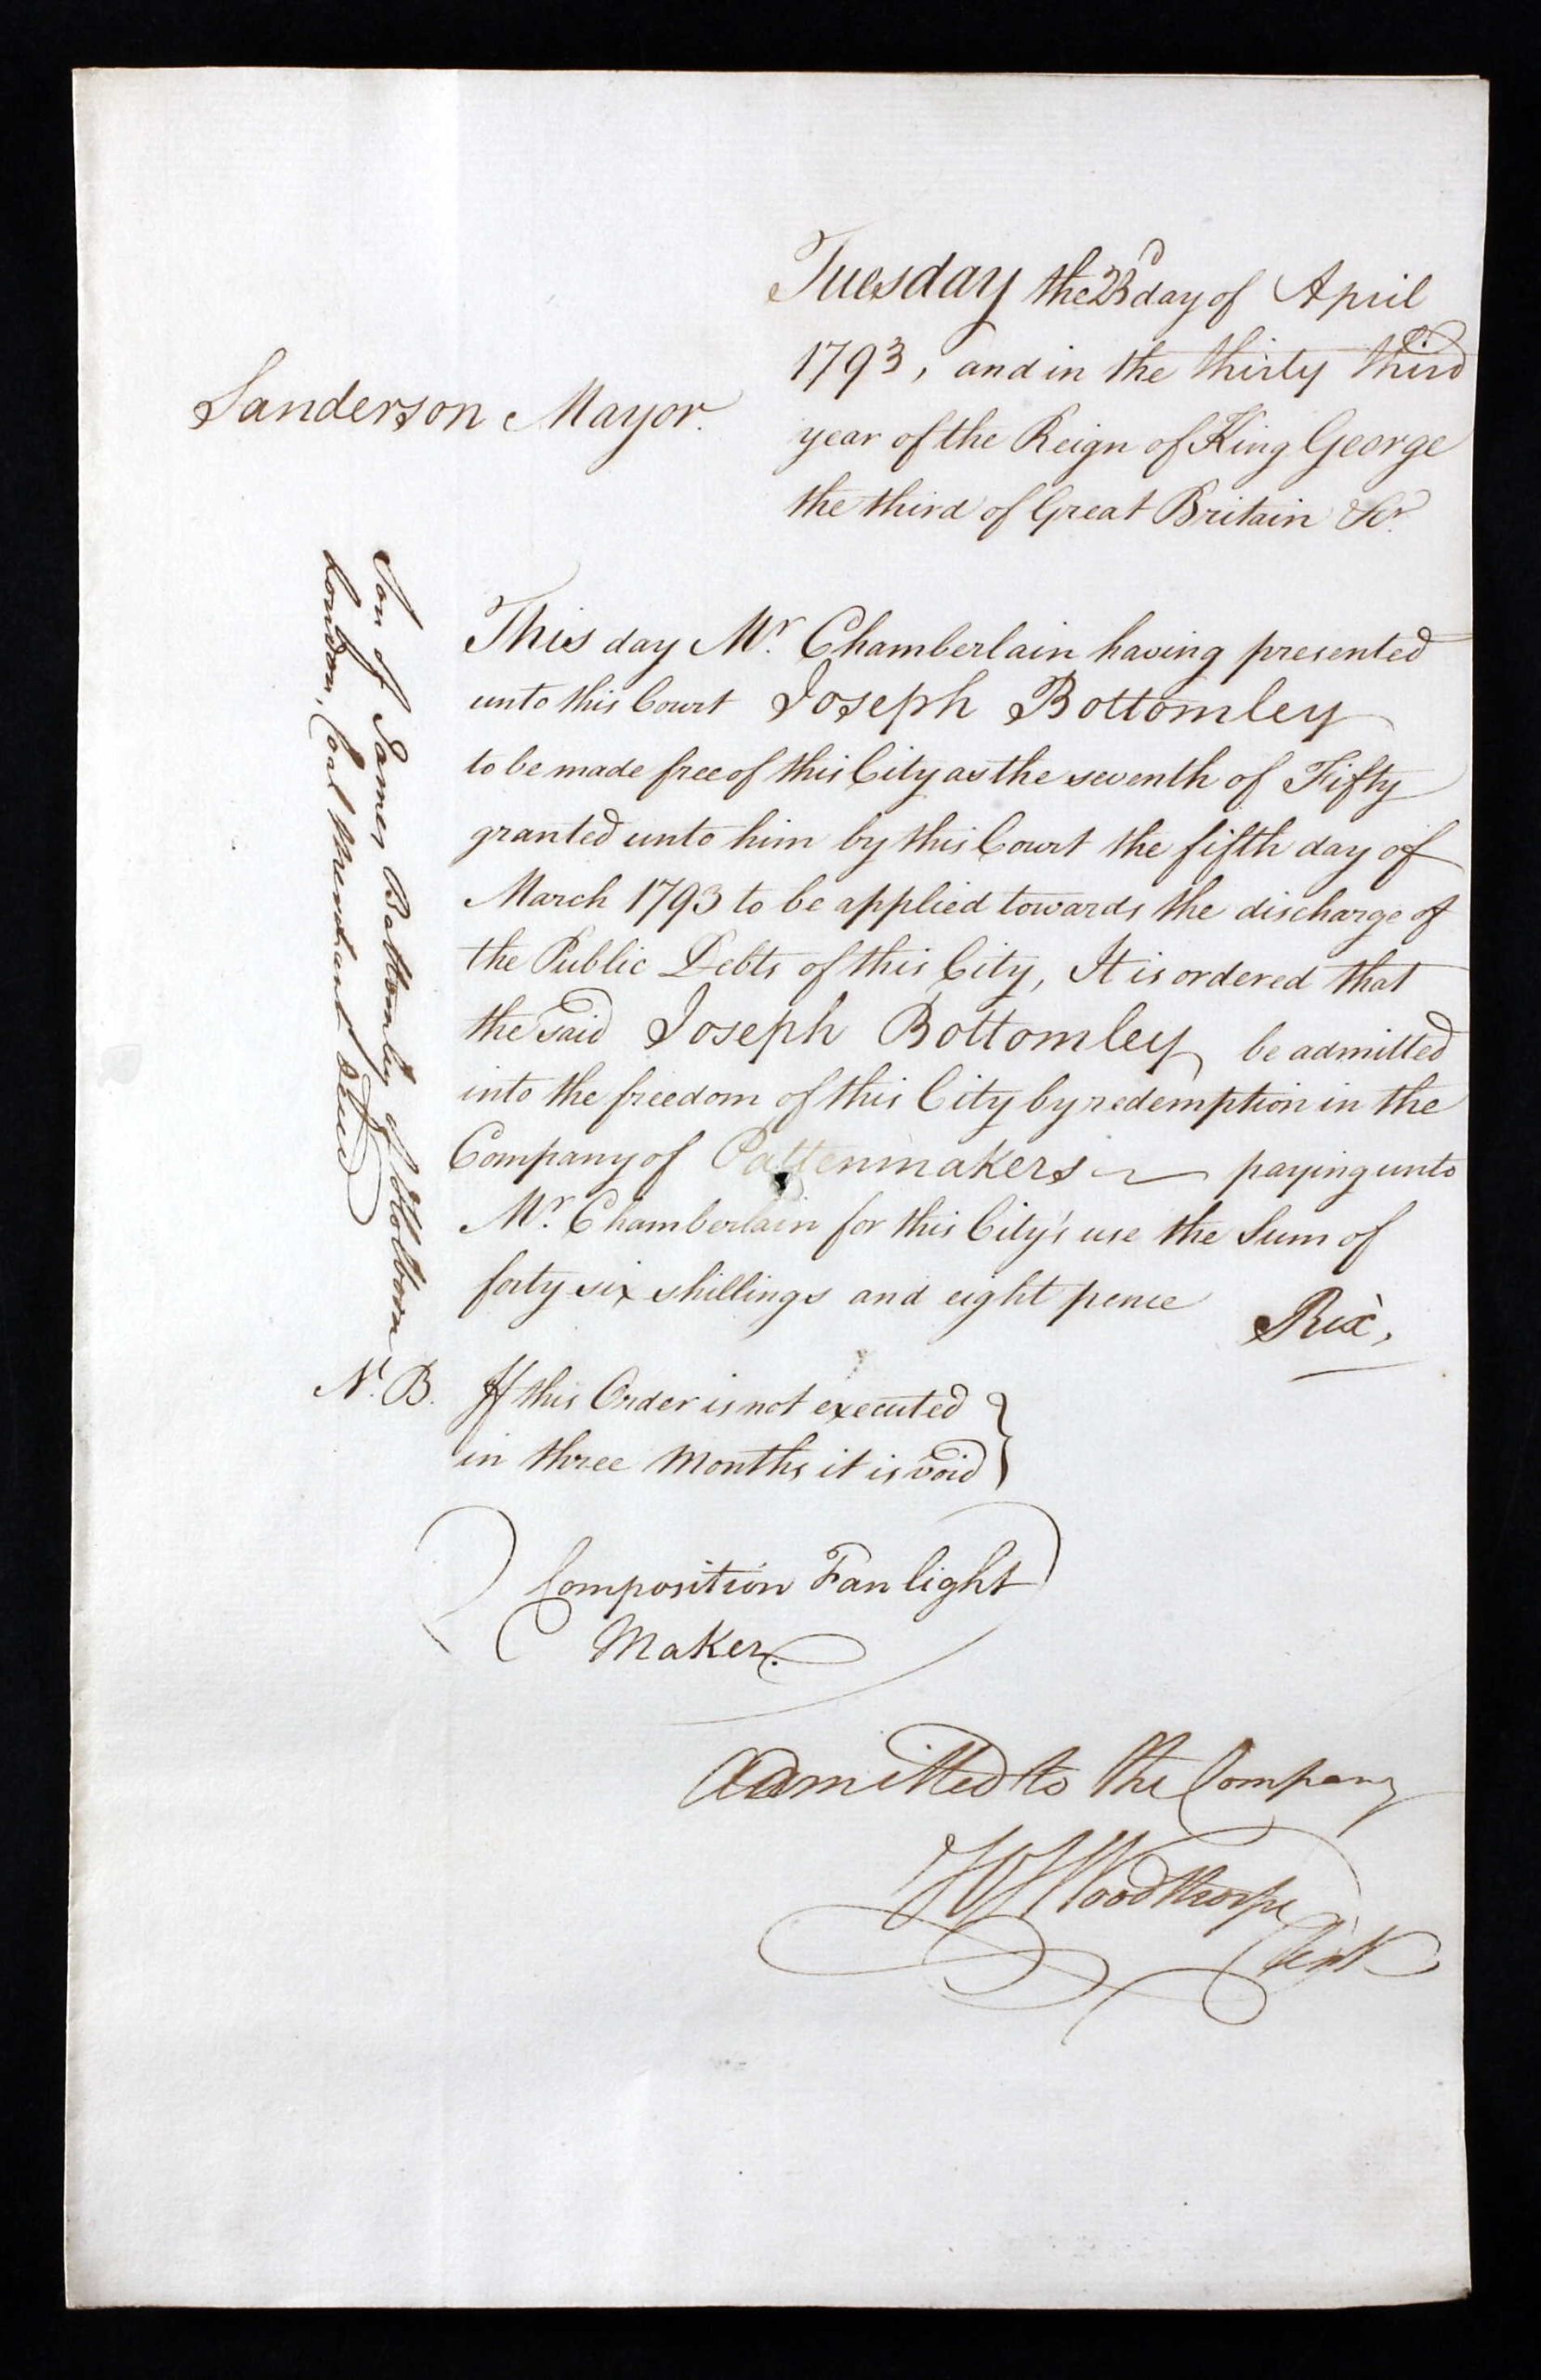 Tuesday the 23d day of April
1793, and in the thirty third
Sanderson Mayor.
year of the Reign of King George
the third of Great Britain &c.
This day Mr. Chamberlain having presented
unto this Court Joseph Bottomley
to be made free of this City as the seventh of Fifty
granted unto him by this Court the fifth day of
March 1793 to be applied towards the discharge of
the Public Debts of this City, It is ordered that
the said Joseph Bottomley be admitted
into the freedom of this City by redemption in the
Company of Pattenmakers paying unto
Mr. Chamberlain for this City's use the Sum of
forty six shillings and eight pence
Rix,
Son of James Bottomley of Holborn
London, Coal Merchant decd
N.B. If this Order is not executed
in three Months it is void
Composition Fan light
Maker.
Admitted to the Company
Woodthorpe
Clerk